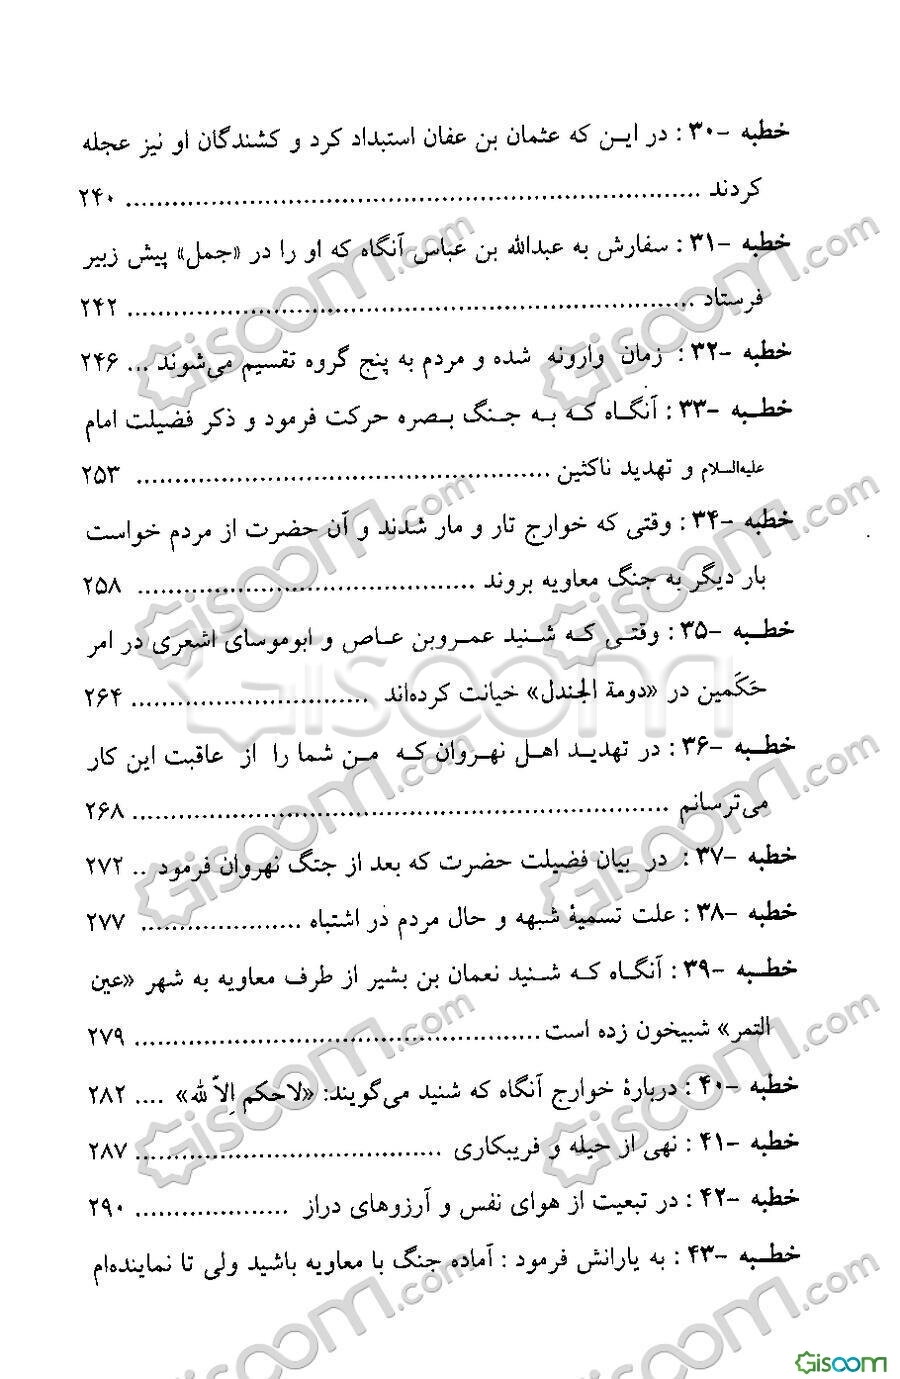 خطبه -۳۰ : در این که عثمان بن عفان استبداد کرد و کشندگان او نیز عجله
کردند ........................................................................... ۲۴۰
خطبه -۳۱ : سفارش به عبدالله بن عباس آنگاه که او را در «جمل» پیش زبیر
فرستاد .......................................................................... ۲۴۲
خطبه -۳۲ : زمان وارونه شده و مردم به پنج گروه تقسیم می‌شوند ... ۲۴۶
خطبه -۳۳ : آنگاه که به جنگ بصره حرکت فرمود و ذکر فضیلت امام
علیه‌السلام و تهدید ناکثین ...................................................... ۲۵۳
خطبه -۳۴ : وقتی که خوارج تار و مار شدند و آن حضرت از مردم خواست
بار دیگر به جنگ معاویه بروند ............................................ ۲۵۸
خطبه -۳۵ : وقتی که شنید عمروبن عاص و ابوموسای اشعری در امر
حَکَمین در «دومة الجندل» خیانت کرده‌اند ............................... ۲۶۴
خطبه -۳۶ : در تهدید اهل نهروان که من شما را از عاقبت این کار
می‌ترسانم ...................................................................... ۲۶۸
خطبه -۳۷ : در بیان فضیلت حضرت که بعد از جنگ نهروان فرمود .. ۲۷۲
خطبه -۳۸ : علت تسمیهٔ شبهه و حال مردم در اشتباه ..................... ۲۷۷
خطبه -۳۹ : آنگاه که شنید نعمان بن بشیر از طرف معاویه به شهر «عین
التمر» شبیخون زده است ..................................................... ۲۷۹
خطبه -۴۰ : دربارهٔ خوارج آنگاه که شنید می‌گویند: «لاحکم اِلاّ لله» .... ۲۸۲
خطبه -۴۱ : نهی از حیله و فریبکاری ........................................ ۲۸۷
خطبه -۴۲ : در تبعیت از هوای نفس و آرزوهای دراز .................... ۲۹۰
خطبه -۴۳ : به یارانش فرمود : آماده جنگ با معاویه باشید ولی تا نماینده‌ام
Giscom